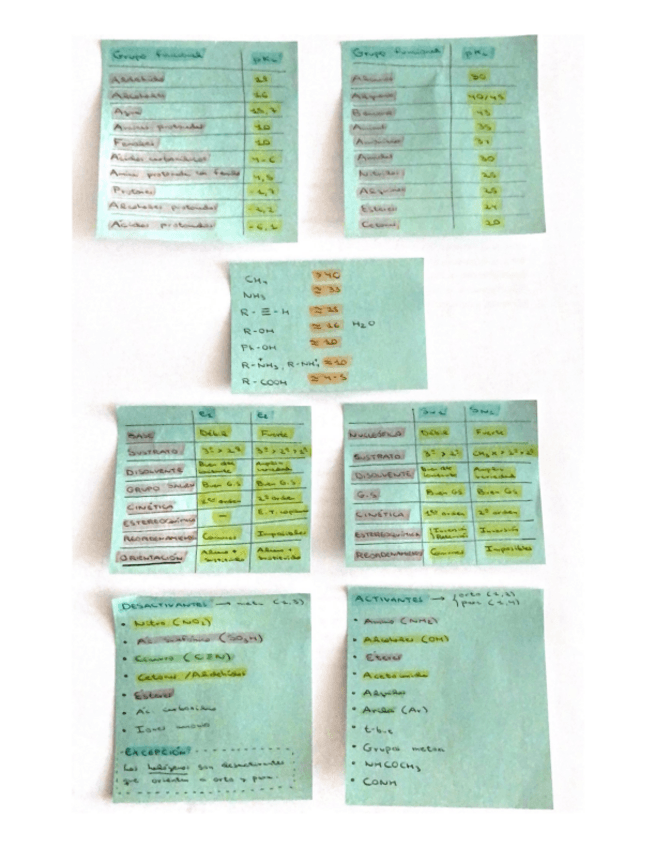 Grupo funcional pKa
Aldehídos
Alcoholes 16
Agua 15,7
Aminas protonadas 10
Fenoles 10
Ácidos carboxílicos 4-6
Amina protonada
Alcoholes protonados
Ácidos protonados
Grupo funcional pKa
45
Amina 35
Amidas 30
Nitrilos 25
Alquinos 25
Ésteres 24
Cetonas 20
CH4 >40
NH3 ≅ 35
R - ≡ - H ≅ 25
R-OH ≅ 16 H2O
≅ 10
R-NH3, R-NH ≅10
R-COOH ≅ 4-5
E2
BASE Débil Fuerte
SUSTRATO 3º > 2º 3º > 2º > 1º
DISOLVENTE Buen Amplia variedad
GRUPO SALIENTE Buen G.S Buen G.S
CINÉTICA 1er orden 2º orden
ESTEREOQUÍMICA –
REORDENAMIENTO Comunes Imposibles
ORIENTACIÓN Alqueno + sustituido Alqueno + sustituido
SN1 SN2
NUCLEÓFILO Débil Fuerte
SUSTRATO 3º > 2º CH3X > 1º > 2º
DISOLVENTE Buen Amplia variedad
G.S Buen GS Buen GS
CINÉTICA 1er orden 2º orden
ESTEREOQUÍMICA Inversión Inversión
REORDENAMIENTO Comunes Imposibles
DESACTIVANTES → meta
• Nitro (NO2)
• Ác. sulfónico (SO3H)
• Cianuro (C≡N)
• Cetonas /Aldehídos
• Ésteres
• Ác. carboxílico
• Iones amonio
EXCEPCIÓN
Los halógenos son desactivantes
que orientan a orto y para.
ACTIVANTES → orto
para
• Amino (NH2)
• Alcoholes (OH)
• Éteres
• Acetamida
• Alquilo
• Arilo (Ar)
• t-buc
• Grupo metoxi
• NHCOCH3
• CONH